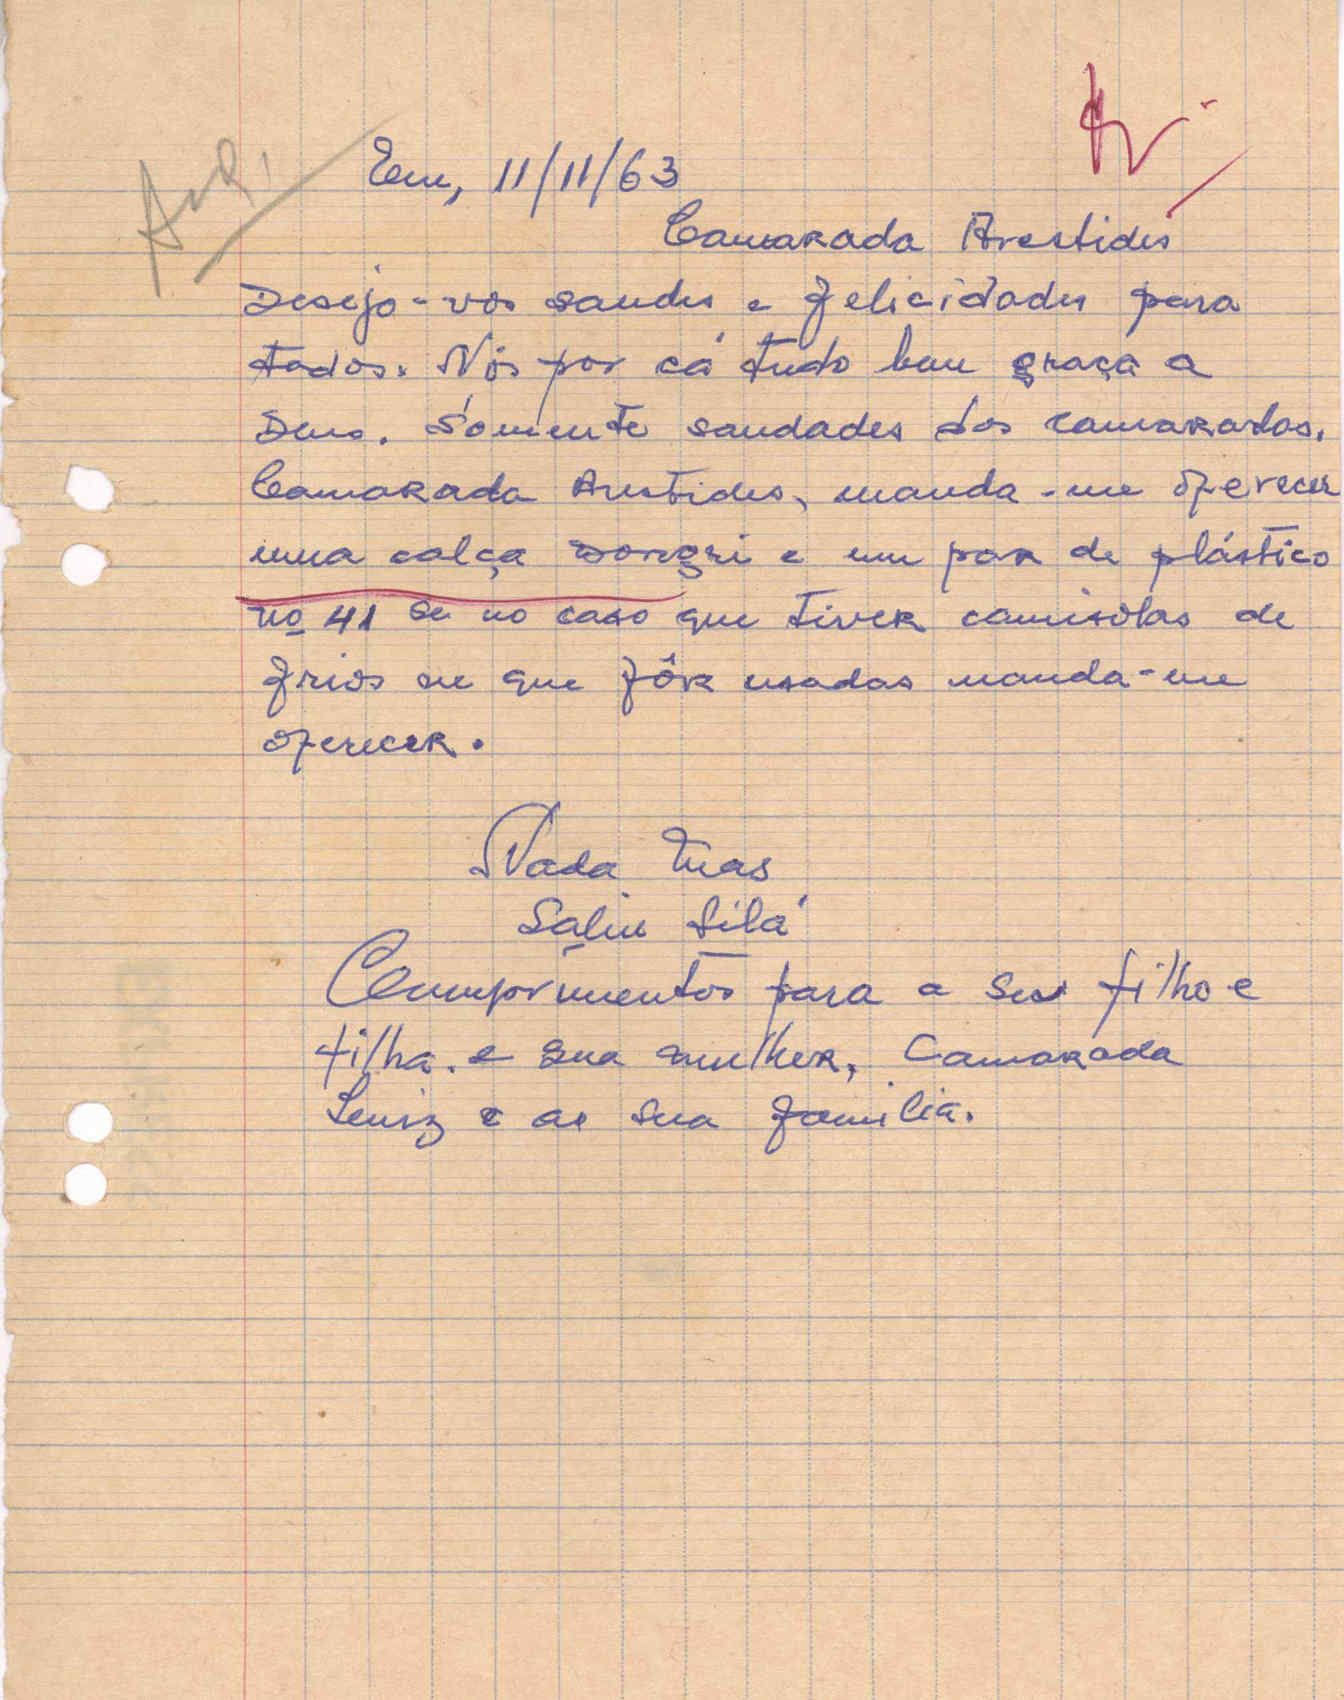 Em, 11/11/63
Camarada Arestides
Desejo-vos saudes e felicidades para
todos. Nós por cá tudo bem graça a
Deus. Sómente saudades dos camaradas.
Camarada Arestides, manda-me oferecer
uma calça e um par de plástico
nº 41 se no caso que tiver camisolas de
frios se que fôr usadas manda-me
oferecer.
Nada mas
Saliu Silá
Cumprimentos para a seu filho e
filha. e sua mulher, Camarada
Luiz e as sua familia.